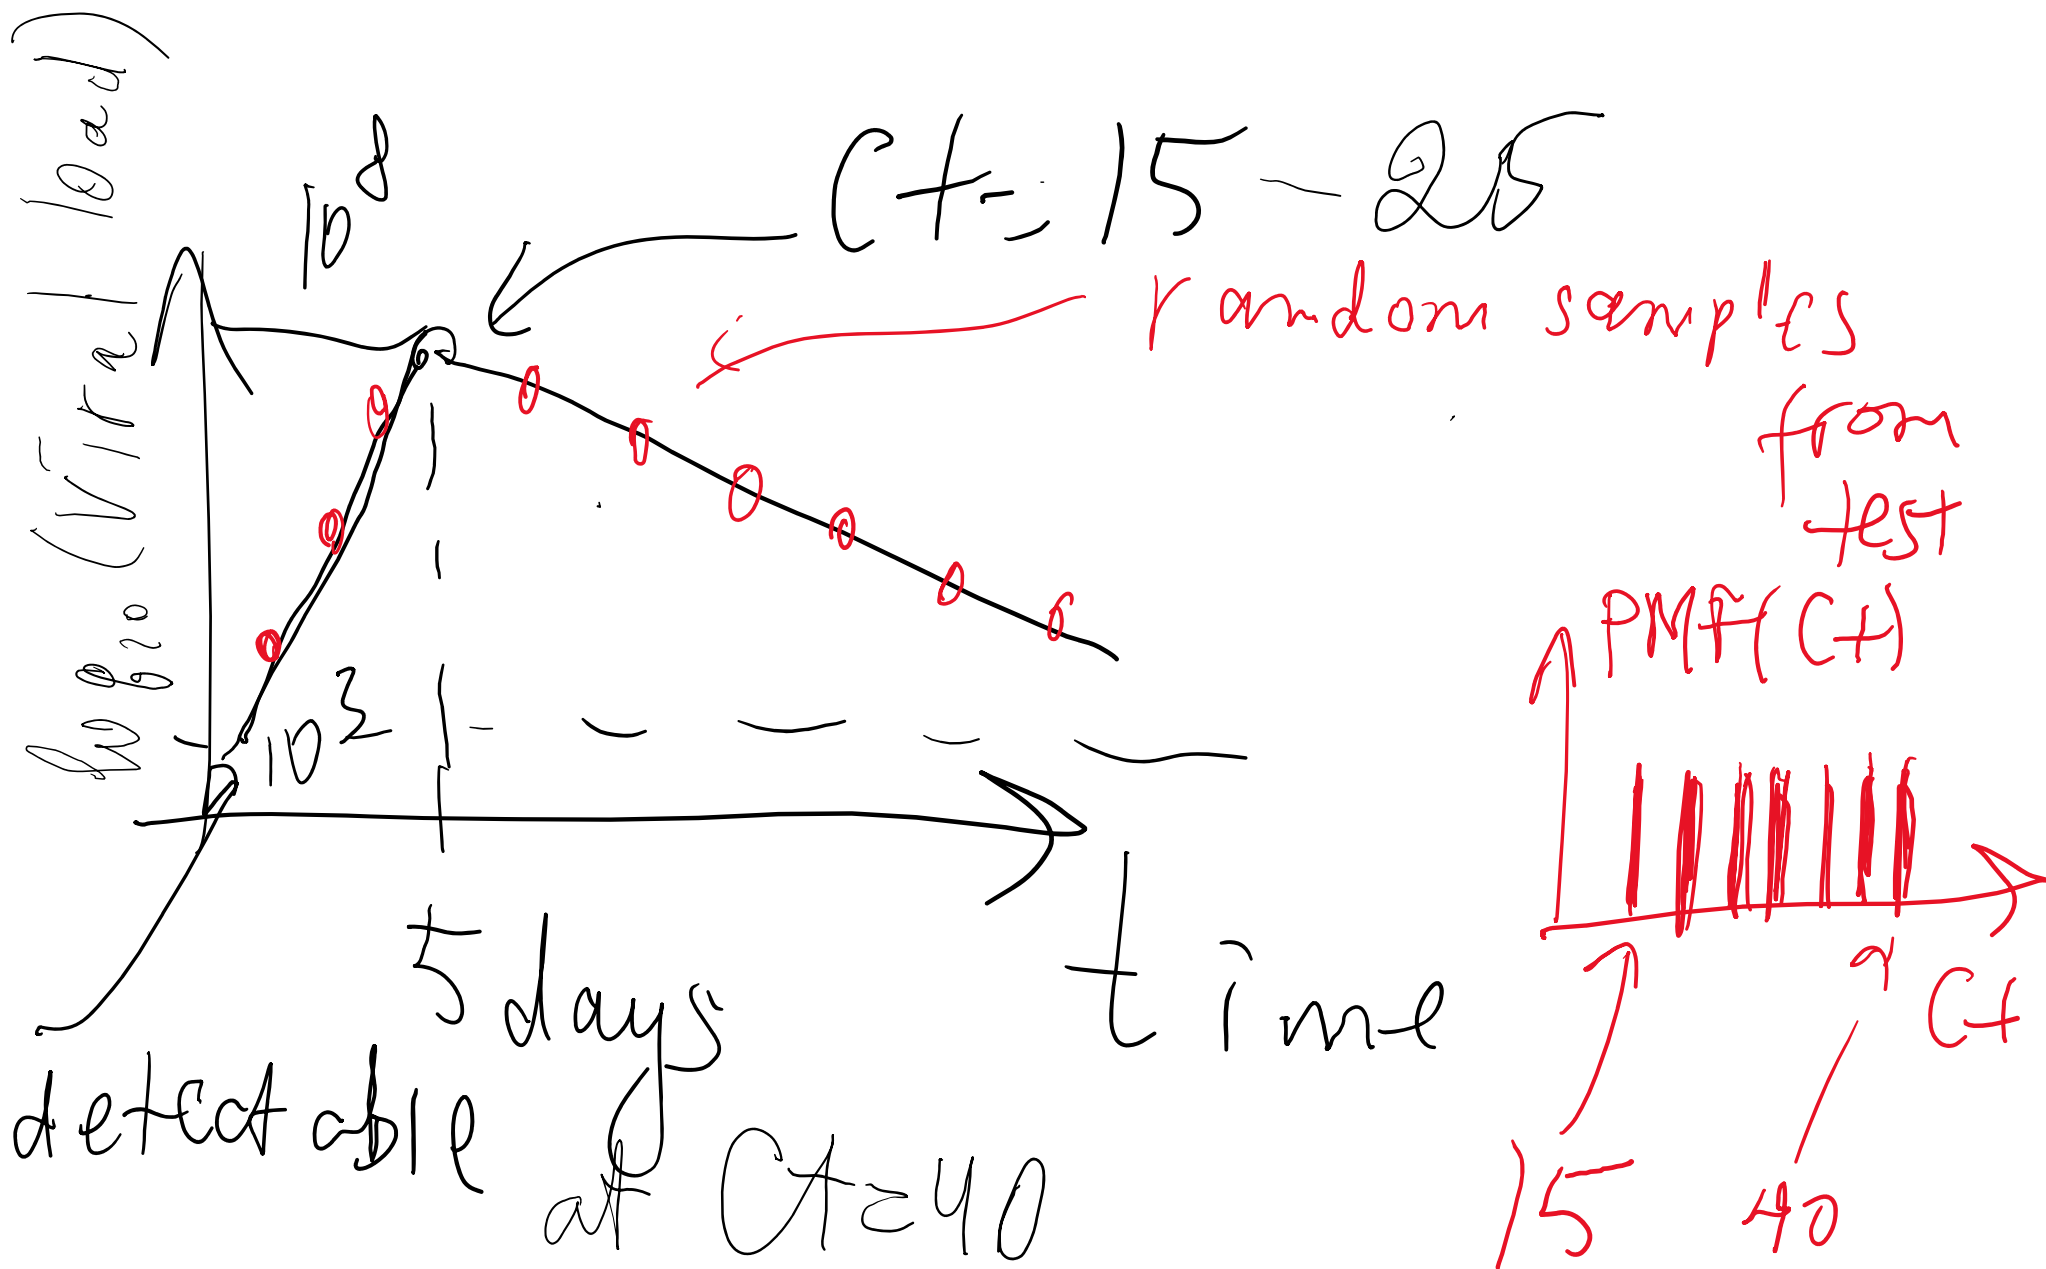 log20 (Viral load)
10^8
Ct = 15 - 25
random samples
from
test
10^3
PMF(Ct)
5 days
time
Ct
detectable
at Ct=40
15
40